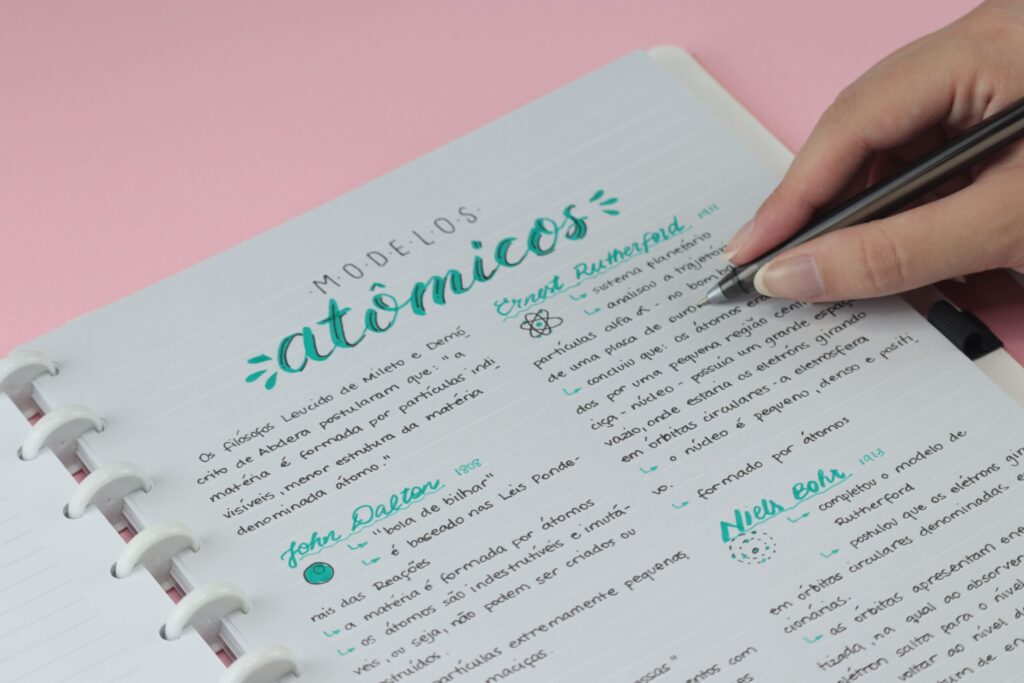 ·M·O·D·E·L·O·S·
atômicos
Os filósofos Leucido de Mileto e Demó
crito de Abdera postularam que: "a
matéria é formada por partículas indi
visíveis, menor estrutura da matéria
denominada átomo."
John Dalton 1808
↳ "bola de bilhar"
↳ é baseado nas Leis Ponde-
rais das Reações
↳ a matéria é formada por átomos
↳ os átomos são indestrutíveis e imutá-
veis, ou seja, não podem ser criados ou
partículas extremamente pequenas,
maciças.
Ernest Rutherford 1911
↳ sistema planetário
↳ analisou a
partículas alfa α - no
de uma placa de ouro
↳ concluiu que: os átomos
dos por uma pequena região
ciça - núcleo - possuía um grande espaço
vazio, onde estaria os eletróns girando
em órbitas circulares - a eletrosfera
↳ o núcleo é pequeno, denso e positi
vo.
↳ formado por átomos
Niels Bohr 1913
↳ completou o modelo de
Rutherford
↳ postulou que os elétrons
em órbitas circulares denominadas
cionárias.
↳ as órbitas apresentam
tizada, na qual ao
salta para o nível
voltar ao nível
de
com